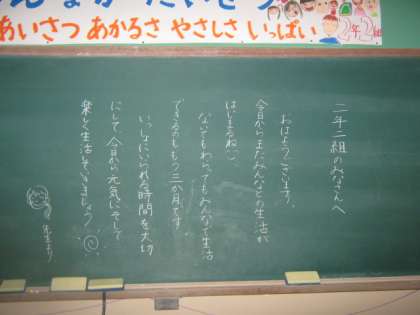 あいさつ あかるさ やさしさ いっぱい
2年2組
二年二組のみなさんへ
おはようございます。
今日からまたみんなとの生活が
はじまるね。
ないてもわらってもみんなで生活
できるのももう三か月です。
いっしょにいられる時間を大切
にして今日から元気にそして
楽しく生活していきましょう
先生より